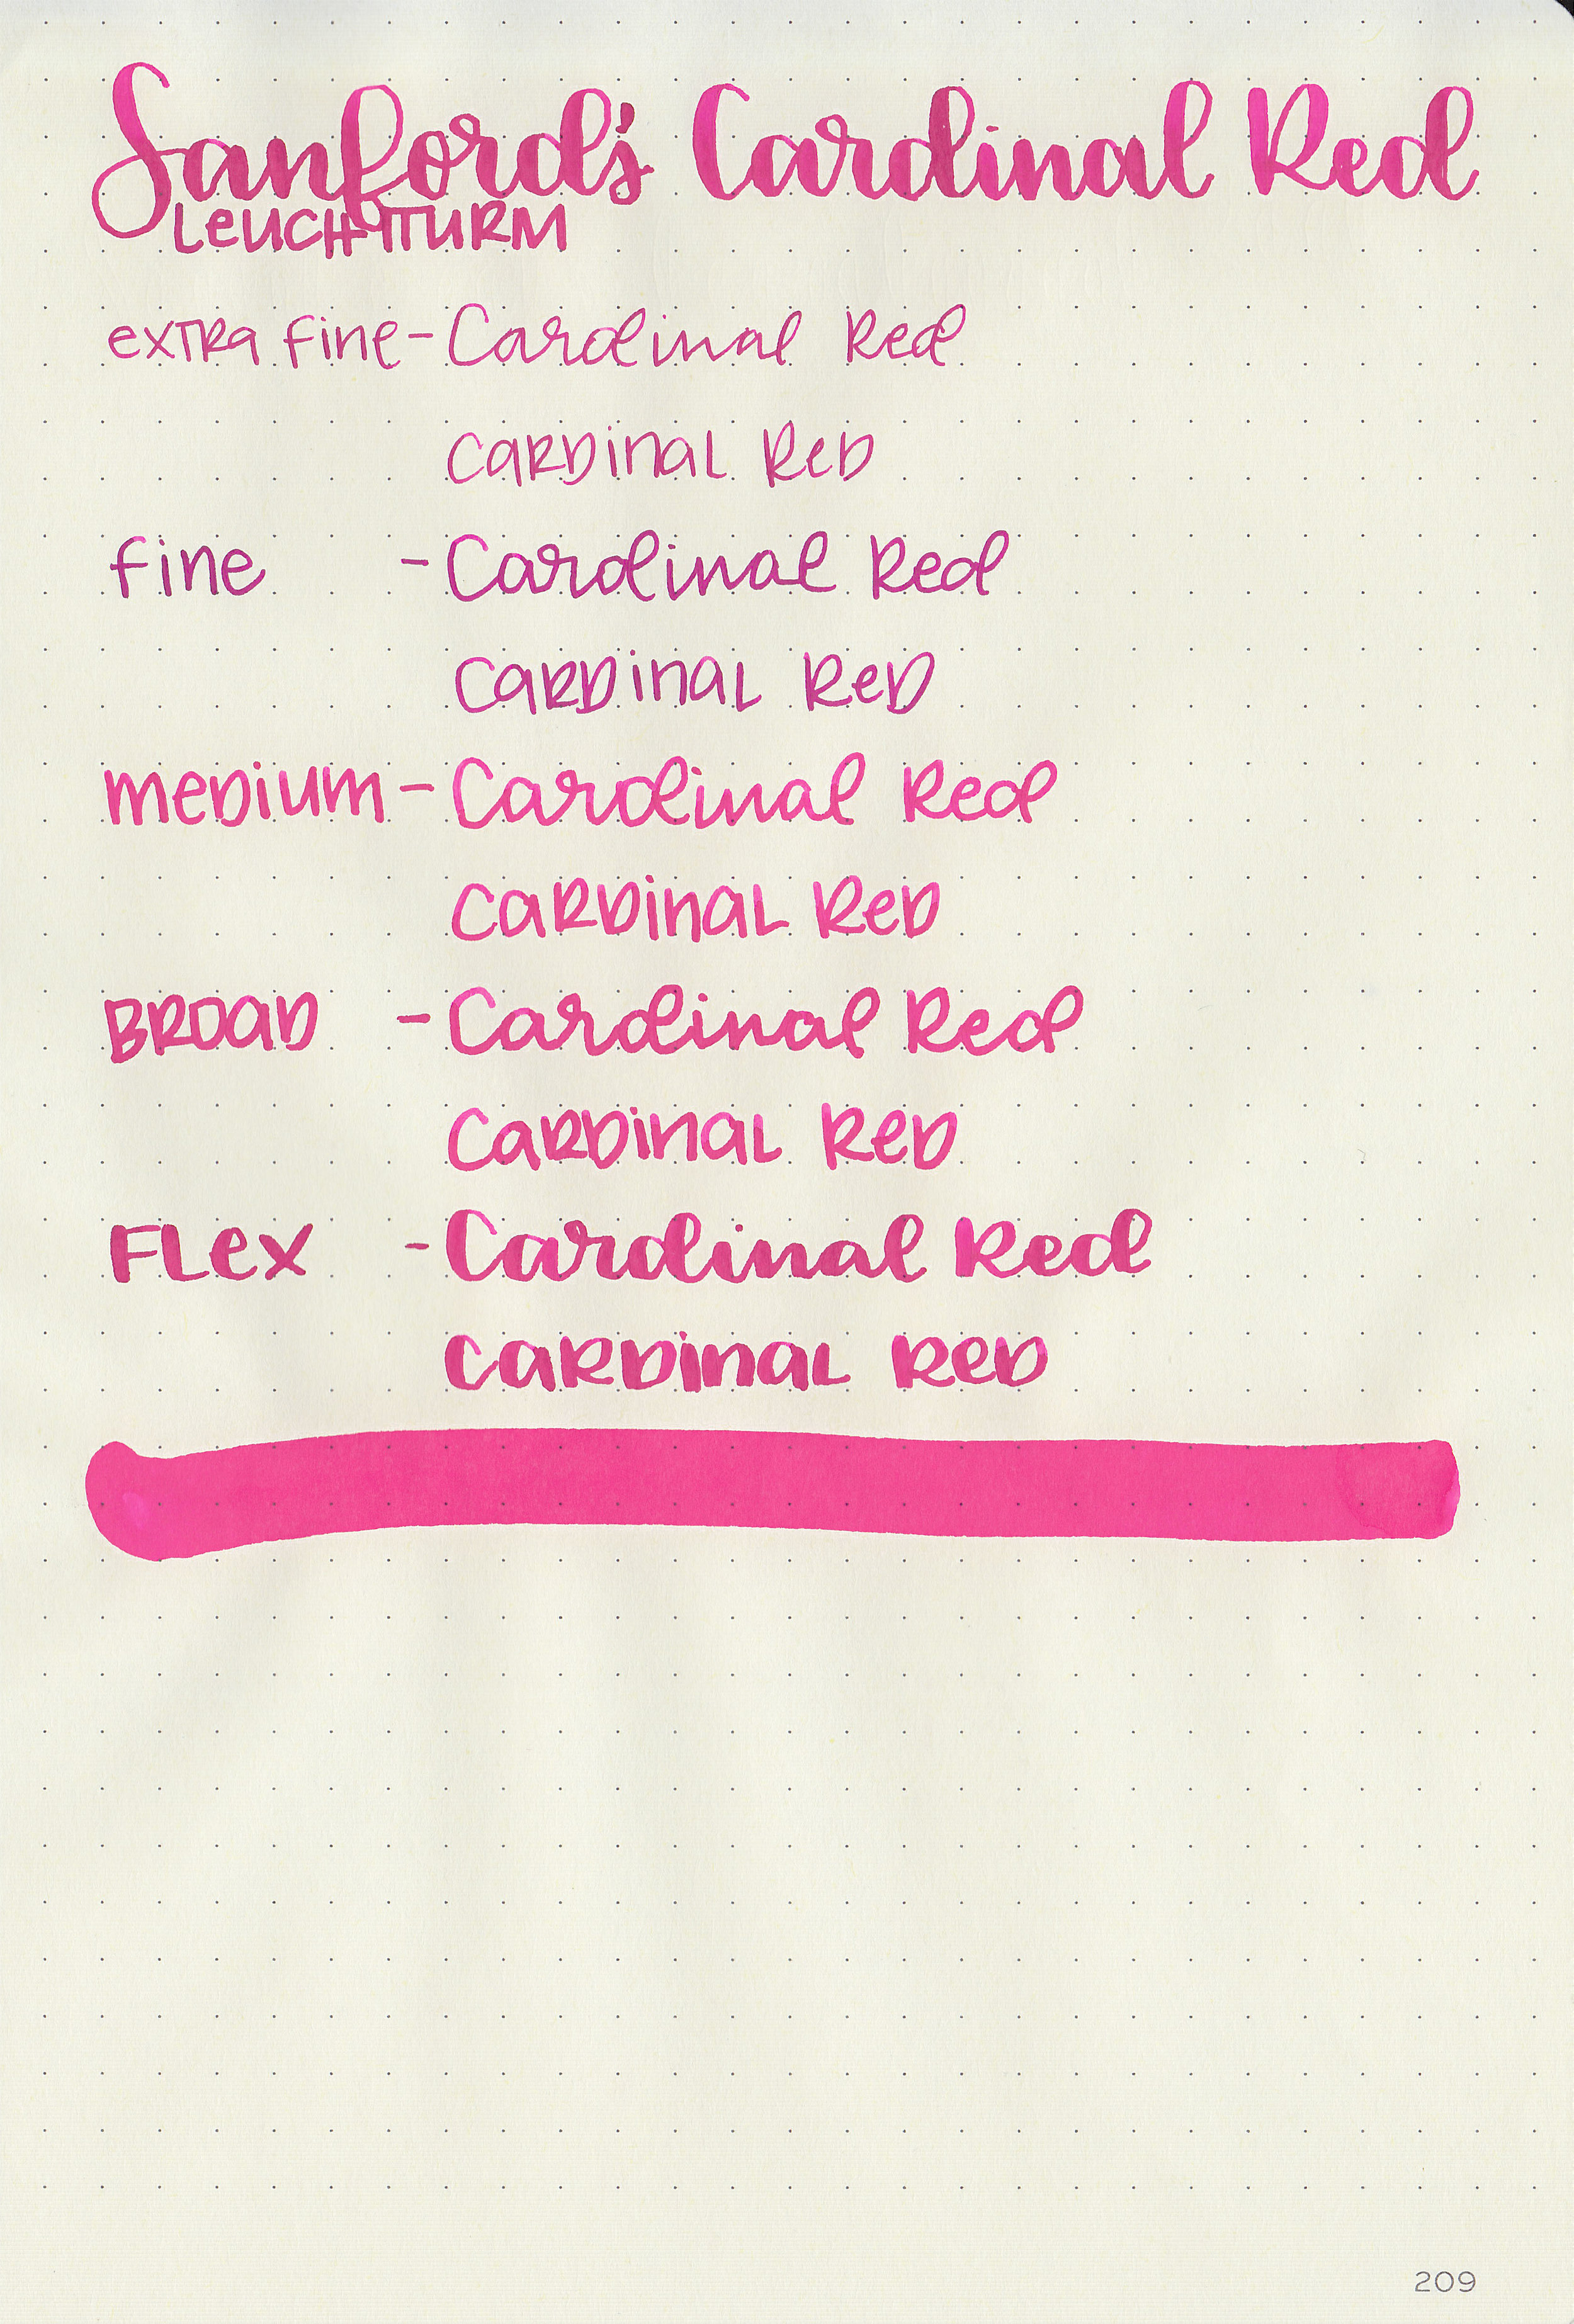 Sanford's Cardinal Red
LEUCHTTURM
extra fine - Cardinal Red
Cardinal Red
fine - Cardinal Red
Cardinal Red
medium - Cardinal Red
Cardinal Red
BROAD - Cardinal Red
Cardinal Red
FLex - Cardinal Red
Cardinal Red
209